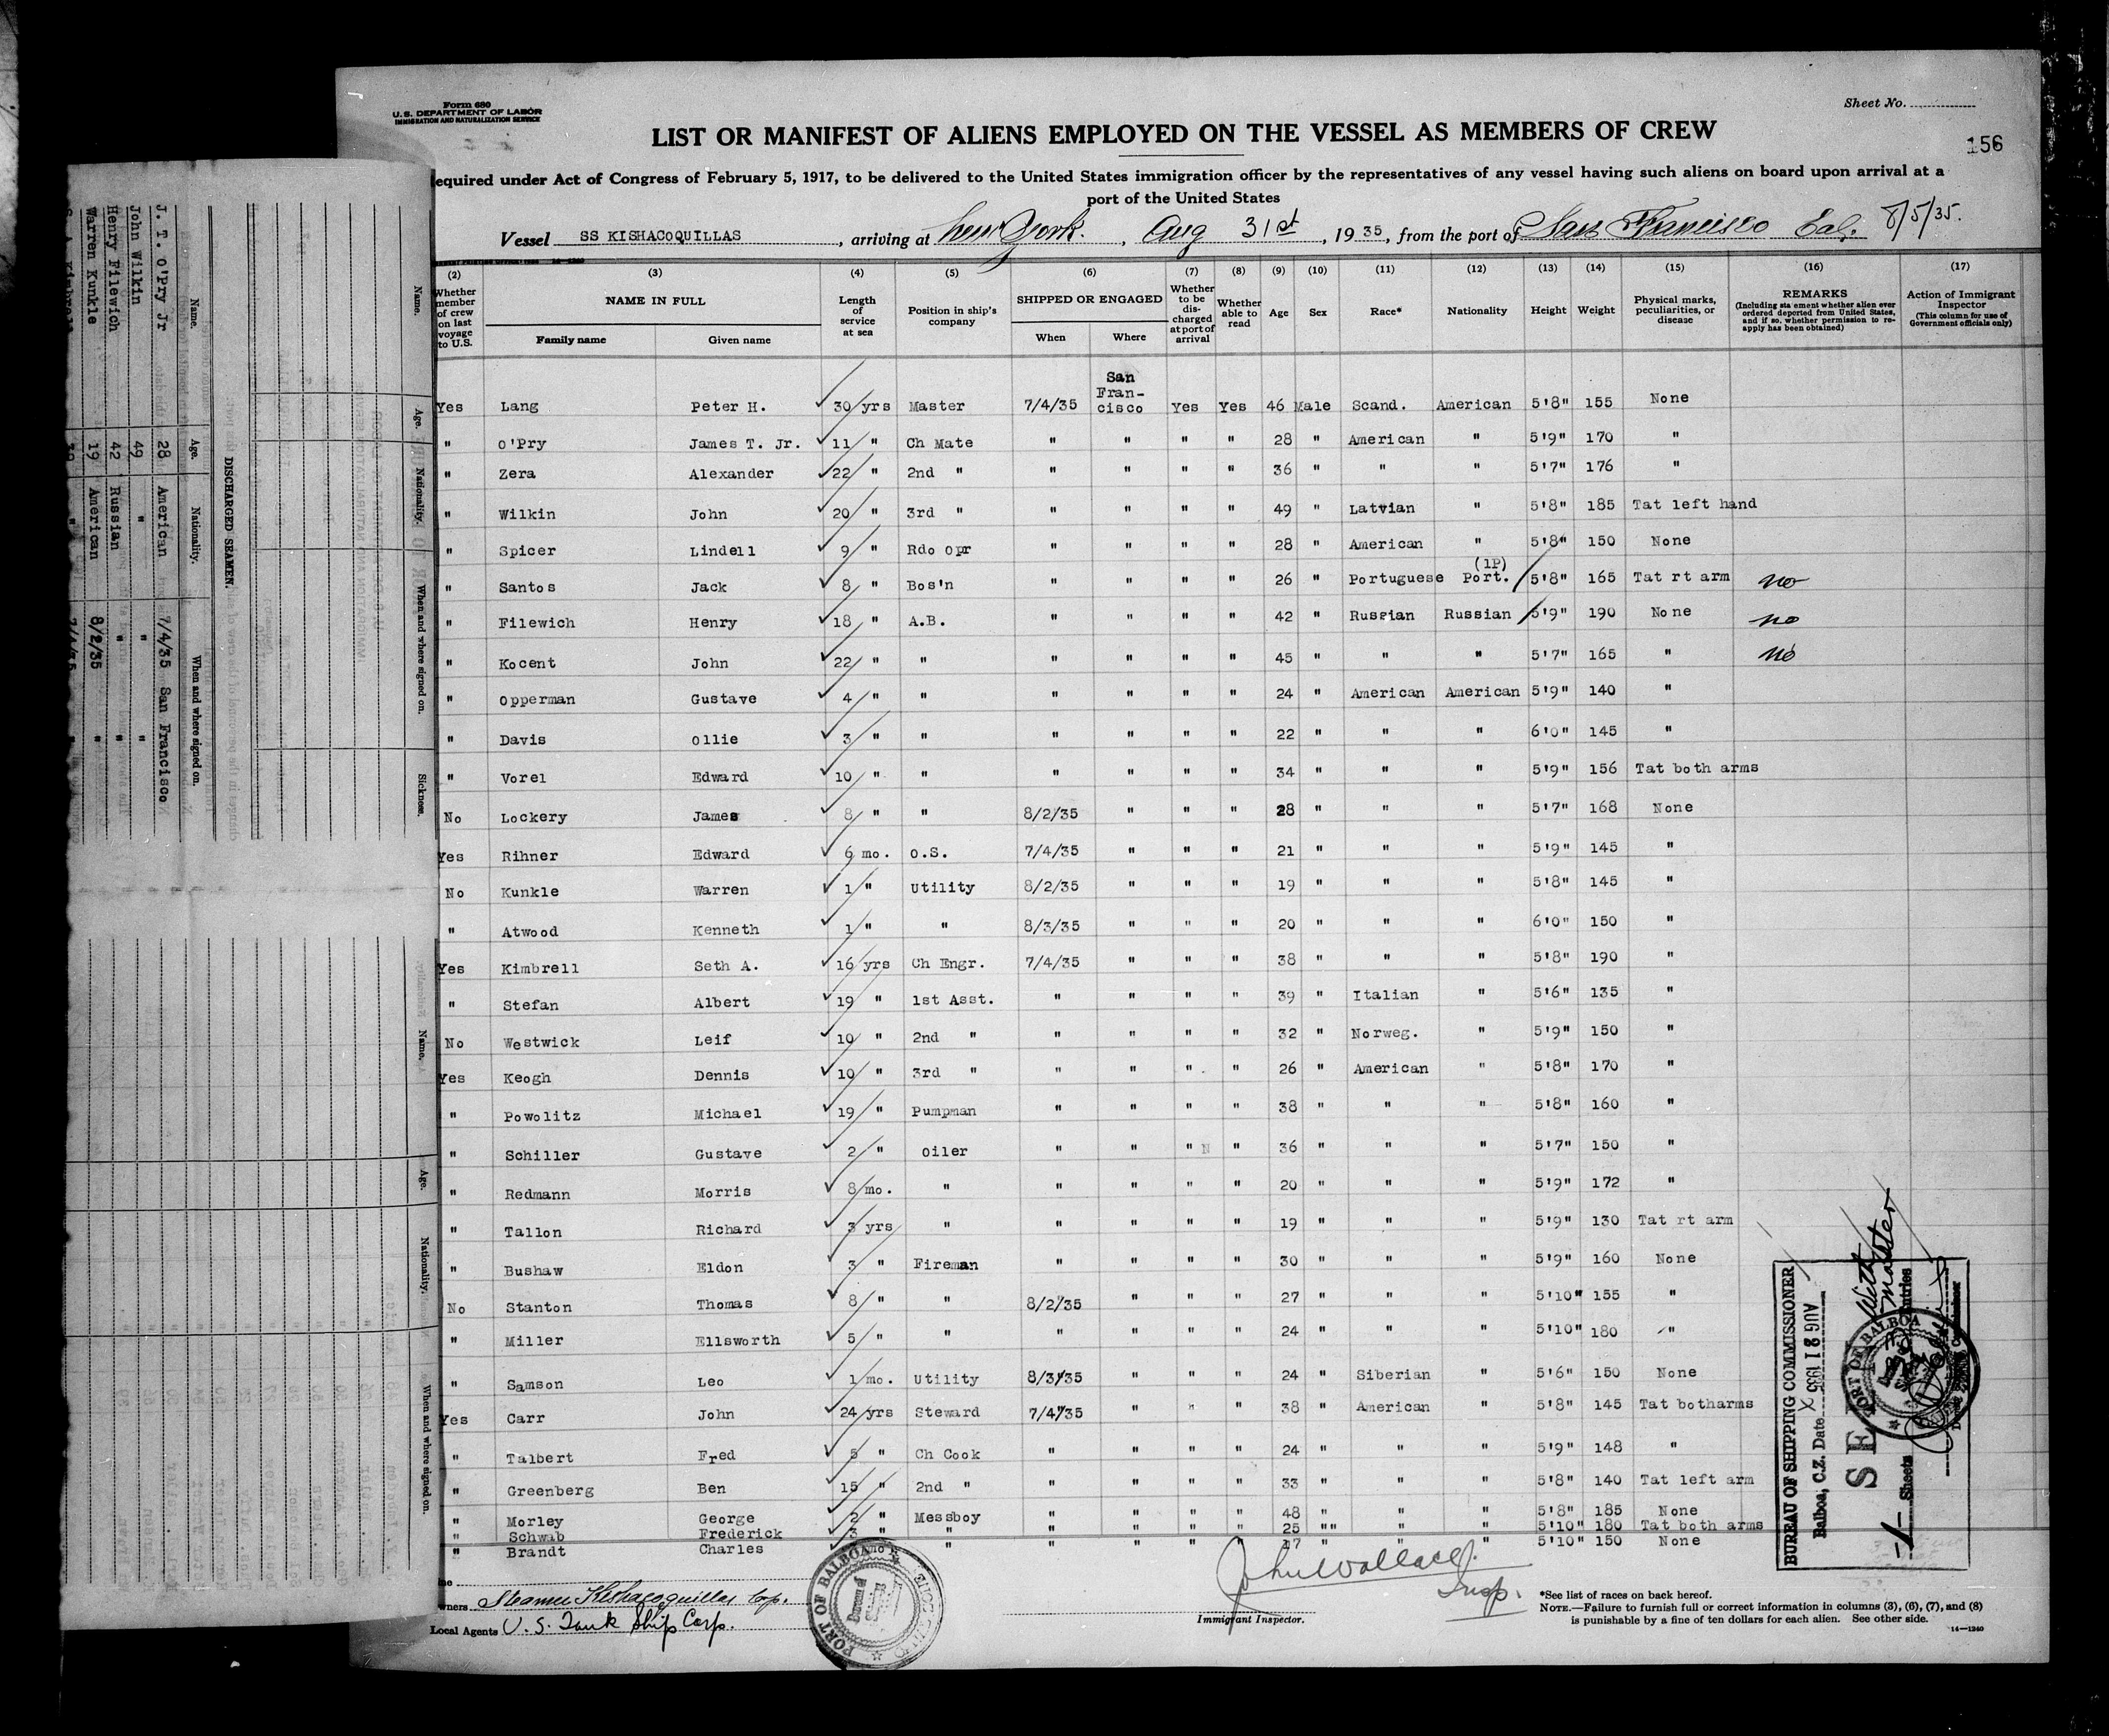 Form 680
U. S. DEPARTMENT OF LABOR
IMMIGRATION AND NATURALIZATION SERVICE
Sheet No.
LIST OR MANIFEST OF ALIENS EMPLOYED ON THE VESSEL AS MEMBERS OF CREW
156
equired under Act of Congress of February 5, 1917, to be delivered to the United States immigration officer by the representatives of any vessel having such aliens on board upon arrival at a
port of the United States
Vessel SS KISHACOQUILLAS, arriving at New York., Aug 31st, 1935, from the port of San Francisco Cal. 8/5/35.
(2) (3) (4) (5) (6) (7) (8) (9) (10) (11) (12) (13) (14) (15) (16) (17)
Whether member of crew on last voyage to U.S. NAME IN FULL Family name Given name Length of service at sea Position in ship's company SHIPPED OR ENGAGED When Where Whether to be discharged at port of arrival Whether able to read Age Sex Race* Nationality Height Weight Physical marks, peculiarities, or disease REMARKS (Including statement whether alien ever ordered deported from United States, and if so, whether permission to re-apply has been obtained) Action of Immigrant Inspector (This column for use of Government officials only)
Yes Lang Peter H. 30 yrs Master 7/4/35 San Fran-cisco Yes Yes 46 Male Scand. American 5'8" 155 None
" O'Pry James T. Jr. 11 " Ch Mate " " " " 28 " American " 5'9" 170 "
" Zera Alexander 22 " 2nd " " " " " 36 " " " 5'7" 176 "
" Wilkin John 20 " 3rd " " " " " 49 " Latvian " 5'8" 185 Tat left hand
" Spicer Lindell 9 " Rdo Opr " " " " 28 " American " 5'8" 150 None
" Santos Jack 8 " Bos'n " " " " 26 " Portuguese (1P) Port. 5'8" 165 Tat rt arm no
" Filewich Henry 18 " A.B. " " " " 42 " Russian Russian 5'9" 190 None no
" Kocent John 22 " " " " " " 45 " " " 5'7" 165 " no
" Opperman Gustave 4 " " " " " " 24 " American American 5'9" 140 "
" Davis Ollie 3 " " " " " " 22 " " " 6'0" 145 "
" Vorel Edward 10 " " " " " " 34 " " " 5'9" 156 Tat both arms
No Lockery James 8 " " 8/2/35 " " " 28 " " " 5'7" 168 None
Yes Rihner Edward 6 mo. O.S. 7/4/35 " " " 21 " " " 5'9" 145 "
No Kunkle Warren 1 " Utility 8/2/35 " " " 19 " " " 5'8" 145 "
" Atwood Kenneth 1 " " 8/3/35 " " " 20 " " " 6'0" 150 "
Yes Kimbrell Seth A. 16 yrs Ch Engr. 7/4/35 " " " 38 " " " 5'8" 190 "
" Stefan Albert 19 " 1st Asst. " " " " 39 " Italian " 5'6" 135 "
No Westwick Leif 10 " 2nd " " " " " 32 " Norweg. " 5'9" 150 "
Yes Keogh Dennis 10 " 3rd " " " " " 26 " American " 5'8" 170 "
" Powolitz Michael 19 " Pumpman " " " " 38 " " " 5'8" 160 "
" Schiller Gustave 2 " Oiler " " " N " 36 " " " 5'7" 150 "
" Redmann Morris 8 mo. " " " " " 20 " " " 5'9" 172 "
" Tallon Richard 3 yrs " " " " " 19 " " " 5'9" 130 Tat rt arm
" Bushaw Eldon 3 " Fireman " " " " 30 " " " 5'9" 160 None
No Stanton Thomas 8 " " 8/2/35 " " " 27 " " " 5'10" 155 "
" Miller Ellsworth 5 " " " " " " 24 " " " 5'10" 180 "
" Samson Leo 1 mo. Utility 8/3/35 " " " 24 " Siberian " 5'6" 150 None
Yes Carr John 24 yrs Steward 7/4/35 " " " 38 " American " 5'8" 145 Tat botharms
" Talbert Fred 5 " Ch Cook " " " " 24 " " " 5'9" 148 "
" Greenberg Ben 15 " 2nd " " " " " 33 " " " 5'8" 140 Tat left arm
" Morley George 2 " Messboy " " " " 48 " " " 5'8" 185 None
" Schwab Frederick 3 " " " " " " 25 "" " " 5'10" 180 Tat both arms
" Brandt Charles " " " " " 17 " " " 5'10" 150 None
wners Steamer Kishacoquillas Cop.
Local Agents U. S. Tank Ship Corp.
PORT OF BALBOA
John Wallace.
Insp.
Immigrant Inspector.
*See list of races on back hereof.
NOTE.—Failure to furnish full or correct information in columns (3), (6), (7), and (8)
is punishable by a fine of ten dollars for each alien. See other side.
14—1240
BUREAU OF SHIPPING COMMISSIONER
Balboa, C.Z. Date AUG 21 1935
SE
1 Sheets
With Master
PORT OF BALBOA
DISCHARGED SEAMEN.
Name. Age. Nationality. When and where signed on.
J. T. O'Pry Jr 28 American 7/4/35 San Francisco
John Wilkin 49 " " "
Henry Filewich 42 Russian " "
Warren Kunkle 19 American 8/2/35 "
Name. Age. Nationality. When and where signed on. Sickness.
Name. Age. Nationality. When and where signed on.